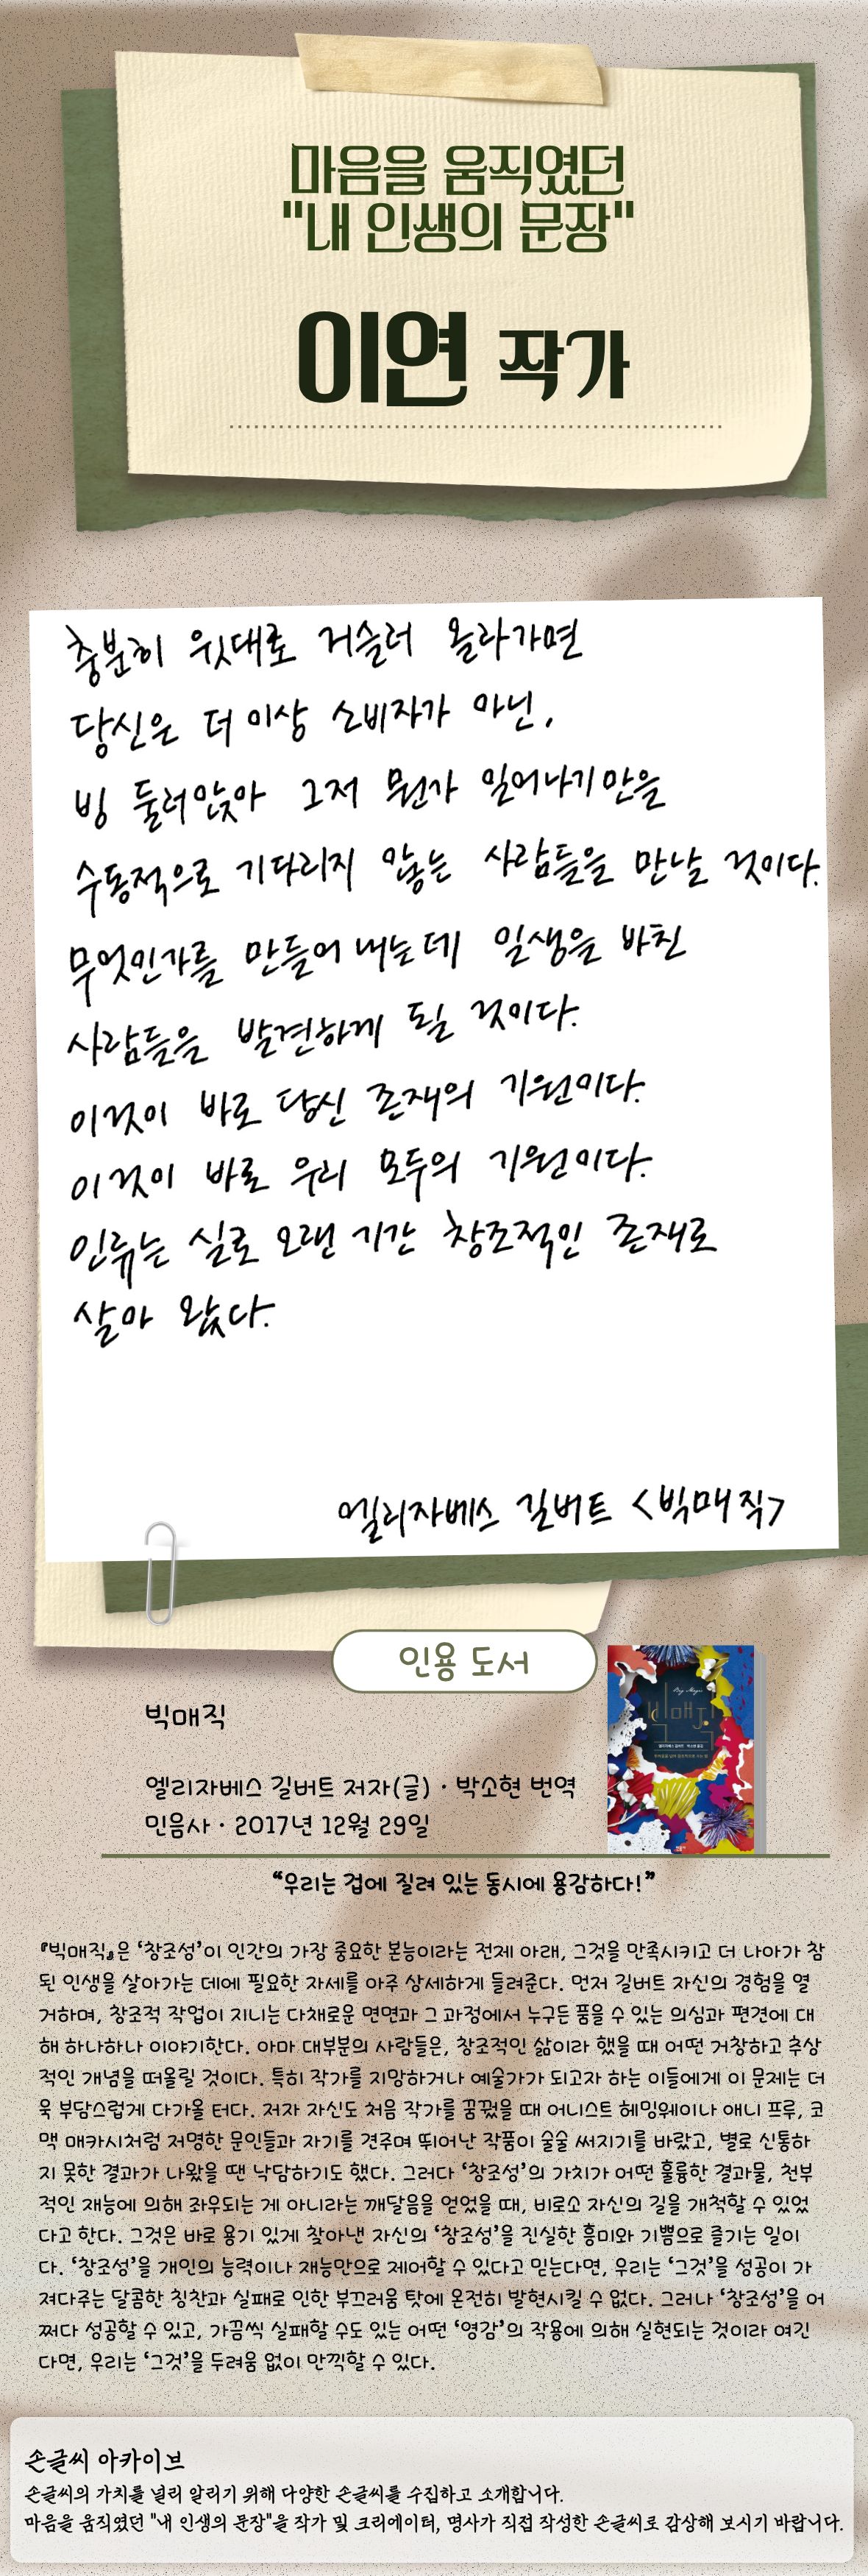 마음을 움직였던
"내 인생의 문장"
이연 작가
충분히 윗대로 거슬러 올라가면
당신은 더 이상 소비자가 아닌,
빙 둘러앉아 그저 뭔가 일어나기만을
수동적으로 기다리지 않는 사람들을 만날 것이다.
무엇인가를 만들어 내는 데 일생을 바친
사람들을 발견하게 될 것이다.
이것이 바로 당신 존재의 기원이다.
이것이 바로 우리 모두의 기원이다.
인류는 실로 오랜 기간 창조적인 존재로
살아 왔다.
엘리자베스 길버트 <빅매직>
인용 도서
빅매직
엘리자베스 길버트 저자(글) · 박소현 번역
민음사 · 2017년 12월 29일
Big Magic
빅매직
“우리는 겁에 질려 있는 동시에 용감하다!”
『빅매직』은 ‘창조성’이 인간의 가장 중요한 본능이라는 전제 아래, 그것을 만족시키고 더 나아가 참
된 인생을 살아가는 데에 필요한 자세를 아주 상세하게 들려준다. 먼저 길버트 자신의 경험을 열
거하며, 창조적 작업이 지니는 다채로운 면면과 그 과정에서 누구든 품을 수 있는 의심과 편견에 대
해 하나하나 이야기한다. 아마 대부분의 사람들은, 창조적인 삶이라 했을 때 어떤 거창하고 추상
적인 개념을 떠올릴 것이다. 특히 작가를 지망하거나 예술가가 되고자 하는 이들에게 이 문제는 더
욱 부담스럽게 다가올 터다. 저자 자신도 처음 작가를 꿈꿨을 때 어니스트 헤밍웨이나 애니 프루, 코
맥 매카시처럼 저명한 문인들과 자기를 견주며 뛰어난 작품이 술술 써지기를 바랐고, 별로 신통하
지 못한 결과가 나왔을 땐 낙담하기도 했다. 그러다 ‘창조성’의 가치가 어떤 훌륭한 결과물, 천부
적인 재능에 의해 좌우되는 게 아니라는 깨달음을 얻었을 때, 비로소 자신의 길을 개척할 수 있었
다고 한다. 그것은 바로 용기 있게 찾아낸 자신의 ‘창조성’을 진실한 흥미와 기쁨으로 즐기는 일이
다. ‘창조성’을 개인의 능력이나 재능만으로 제어할 수 있다고 믿는다면, 우리는 ‘그것’을 성공이 가
져다주는 달콤한 칭찬과 실패로 인한 부끄러움 탓에 온전히 발현시킬 수 없다. 그러나 ‘창조성’을 어
쩌다 성공할 수 있고, 가끔씩 실패할 수도 있는 어떤 ‘영감’의 작용에 의해 실현되는 것이라 여긴
다면, 우리는 ‘그것’을 두려움 없이 만끽할 수 있다.
손글씨 아카이브
손글씨의 가치를 널리 알리기 위해 다양한 손글씨를 수집하고 소개합니다.
마음을 움직였던 "내 인생의 문장"을 작가 및 크리에이터, 명사가 직접 작성한 손글씨로 감상해 보시기 바랍니다.